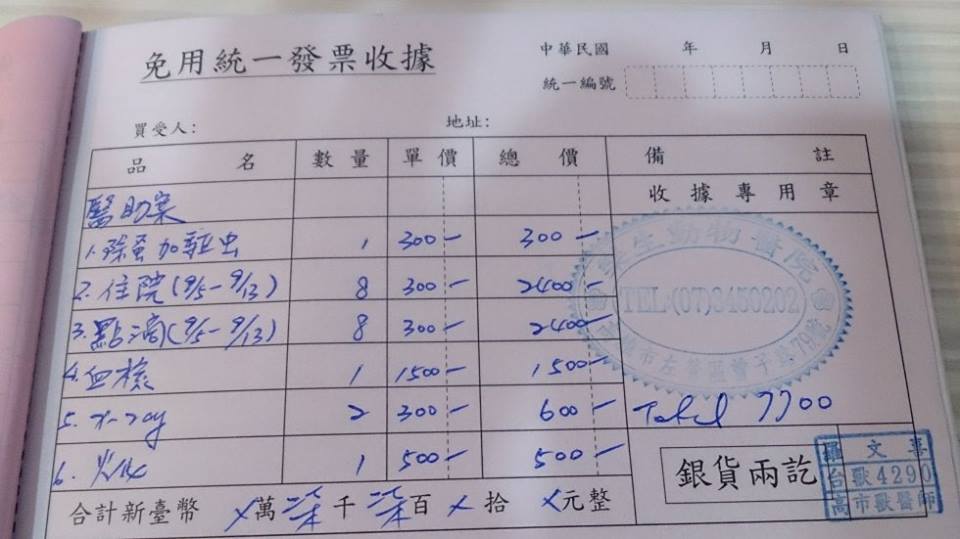 免用統一發票收據
中華民國 年 月 日
統一編號
買受人: 地址:
品名 數量 單價 總價 備註
收據專用章
醫助案
1.除蚤加驅虫 1 300- 300-
2.住院(9/5-9/13) 8 300- 2400-
3.點滴(9/5-9/13) 8 300- 2400-
4.血檢 1 1500- 1500-
5.x-ray 2 300- 600-
6.火化 1 500- 500-
生動物醫院
TEL:(07)3450202
市左營區曾子路79號
Total 7700
銀貨兩訖
羅文
台獸4290
高市獸醫師
合計新臺幣 ×萬柒千柒百×拾×元整